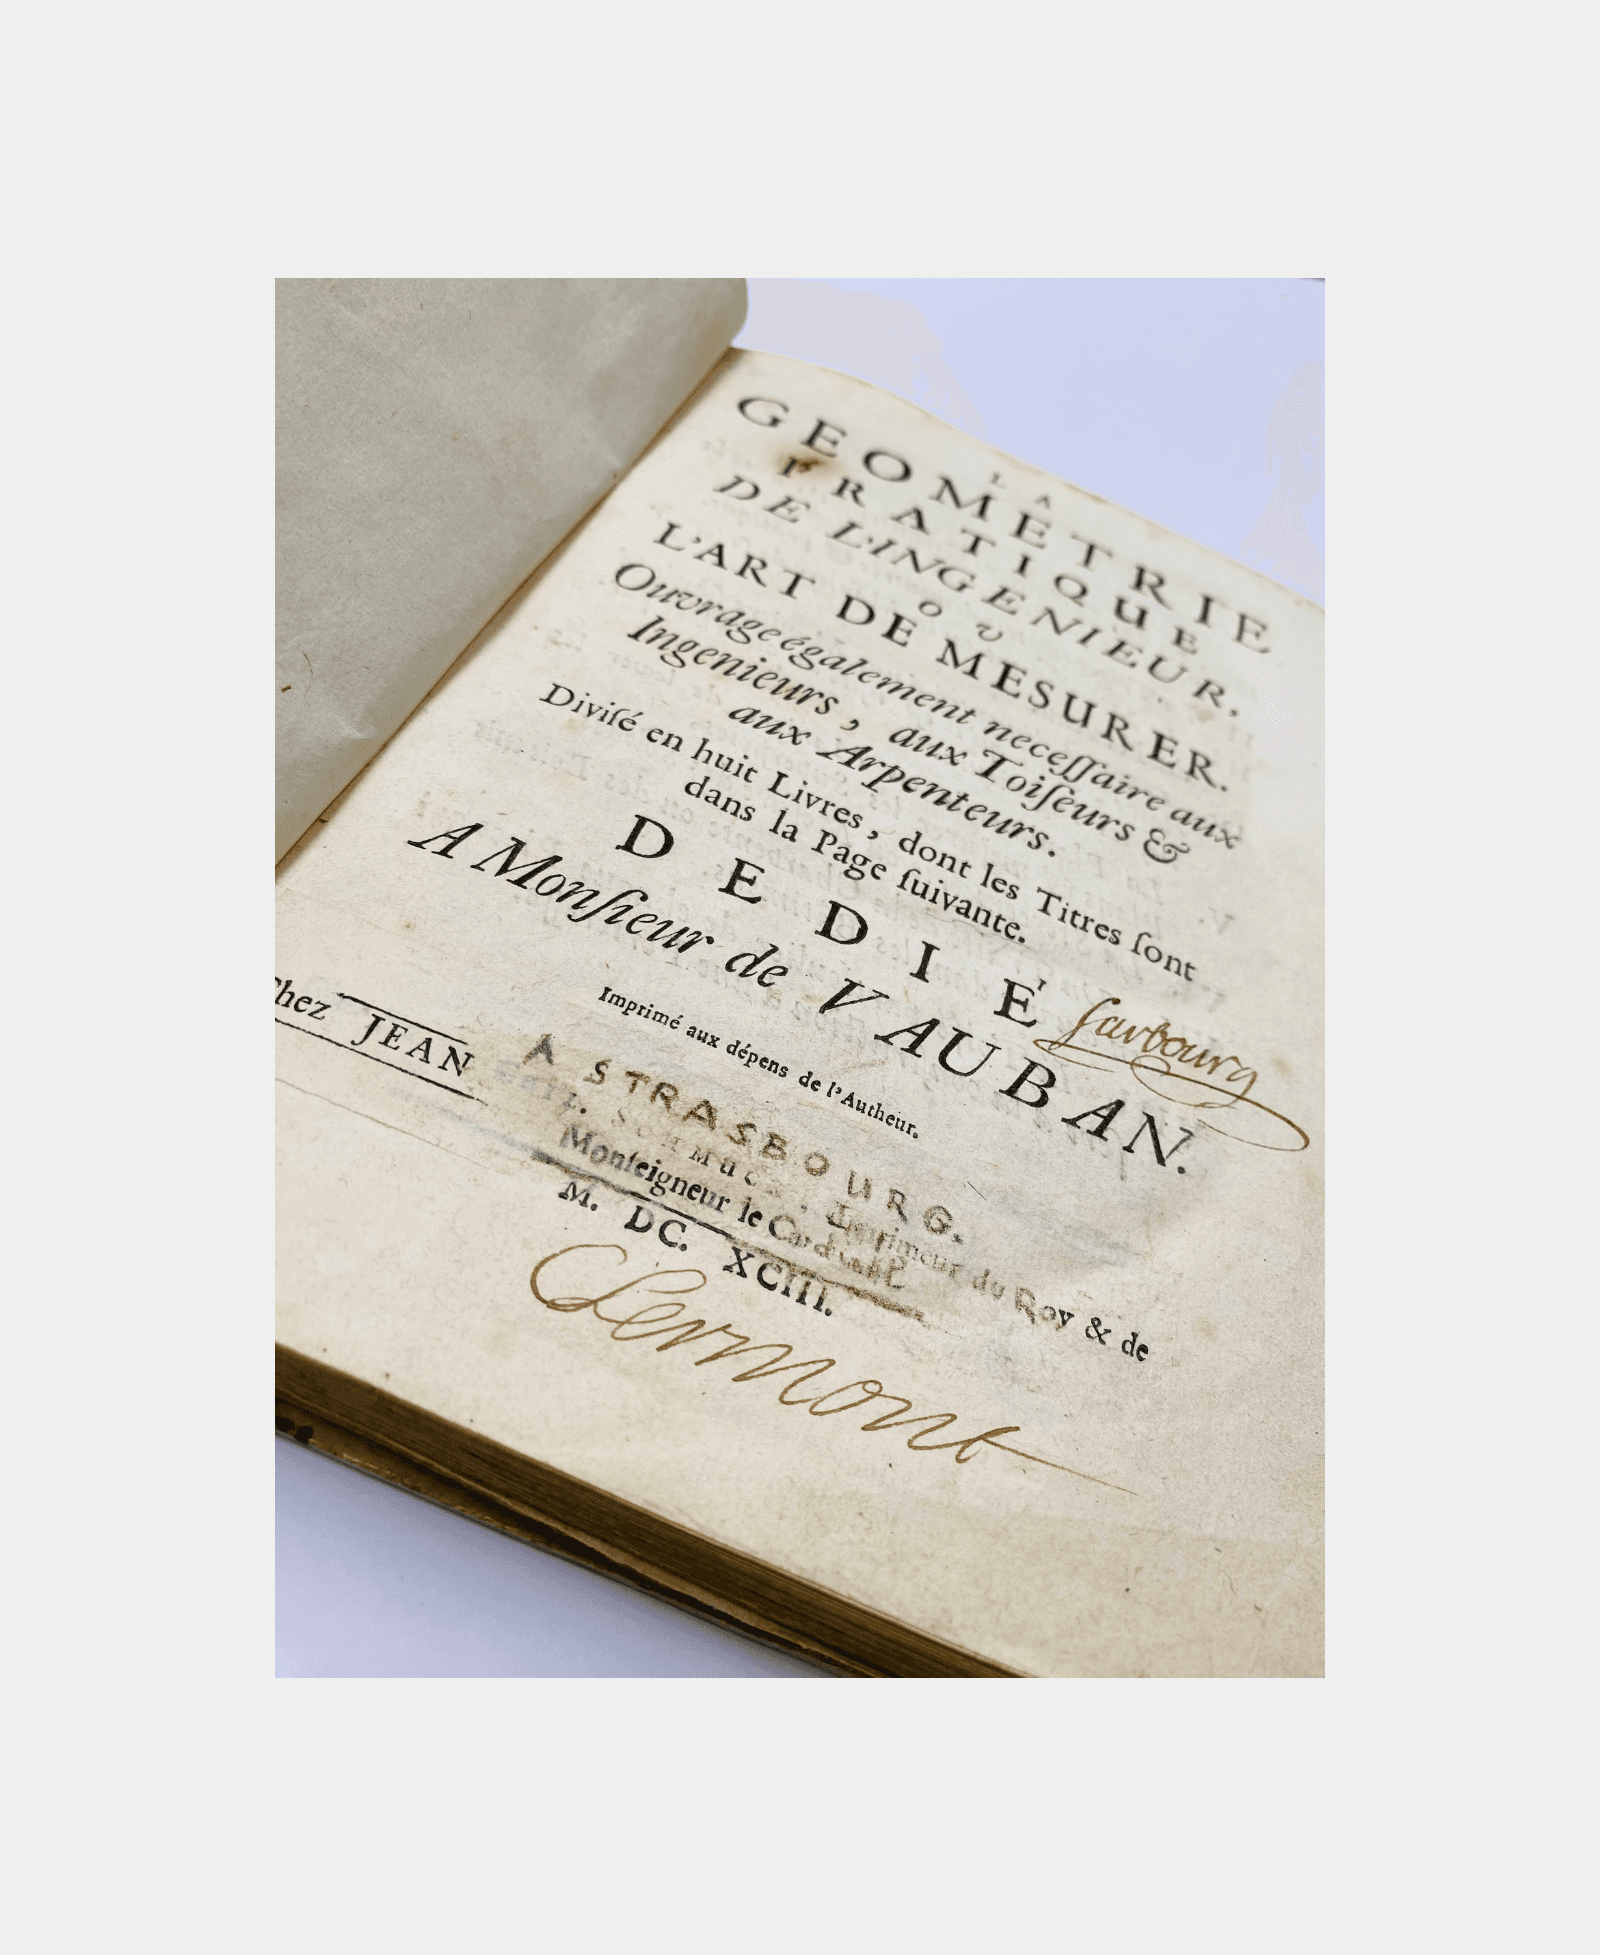 LA
GEOMETRIE
PRATIQUE
DE L'INGENIEUR,
OU
L'ART DE MESURER.
Ouvrage également neceſſaire aux
Ingenieurs, aux Toiſeurs &
aux Arpenteurs.
Diviſé en huit Livres, dont les Titres ſont
dans la Page ſuivante.
DEDIÉ
A Monſieur de VAUBAN.
Imprimé aux dépens de l'Autheur.
A STRASBOURG.
Chez JEAN Imprimeur du Roy & de
Monſeigneur le Cardinal
M. DC. XCIII.
Clermont